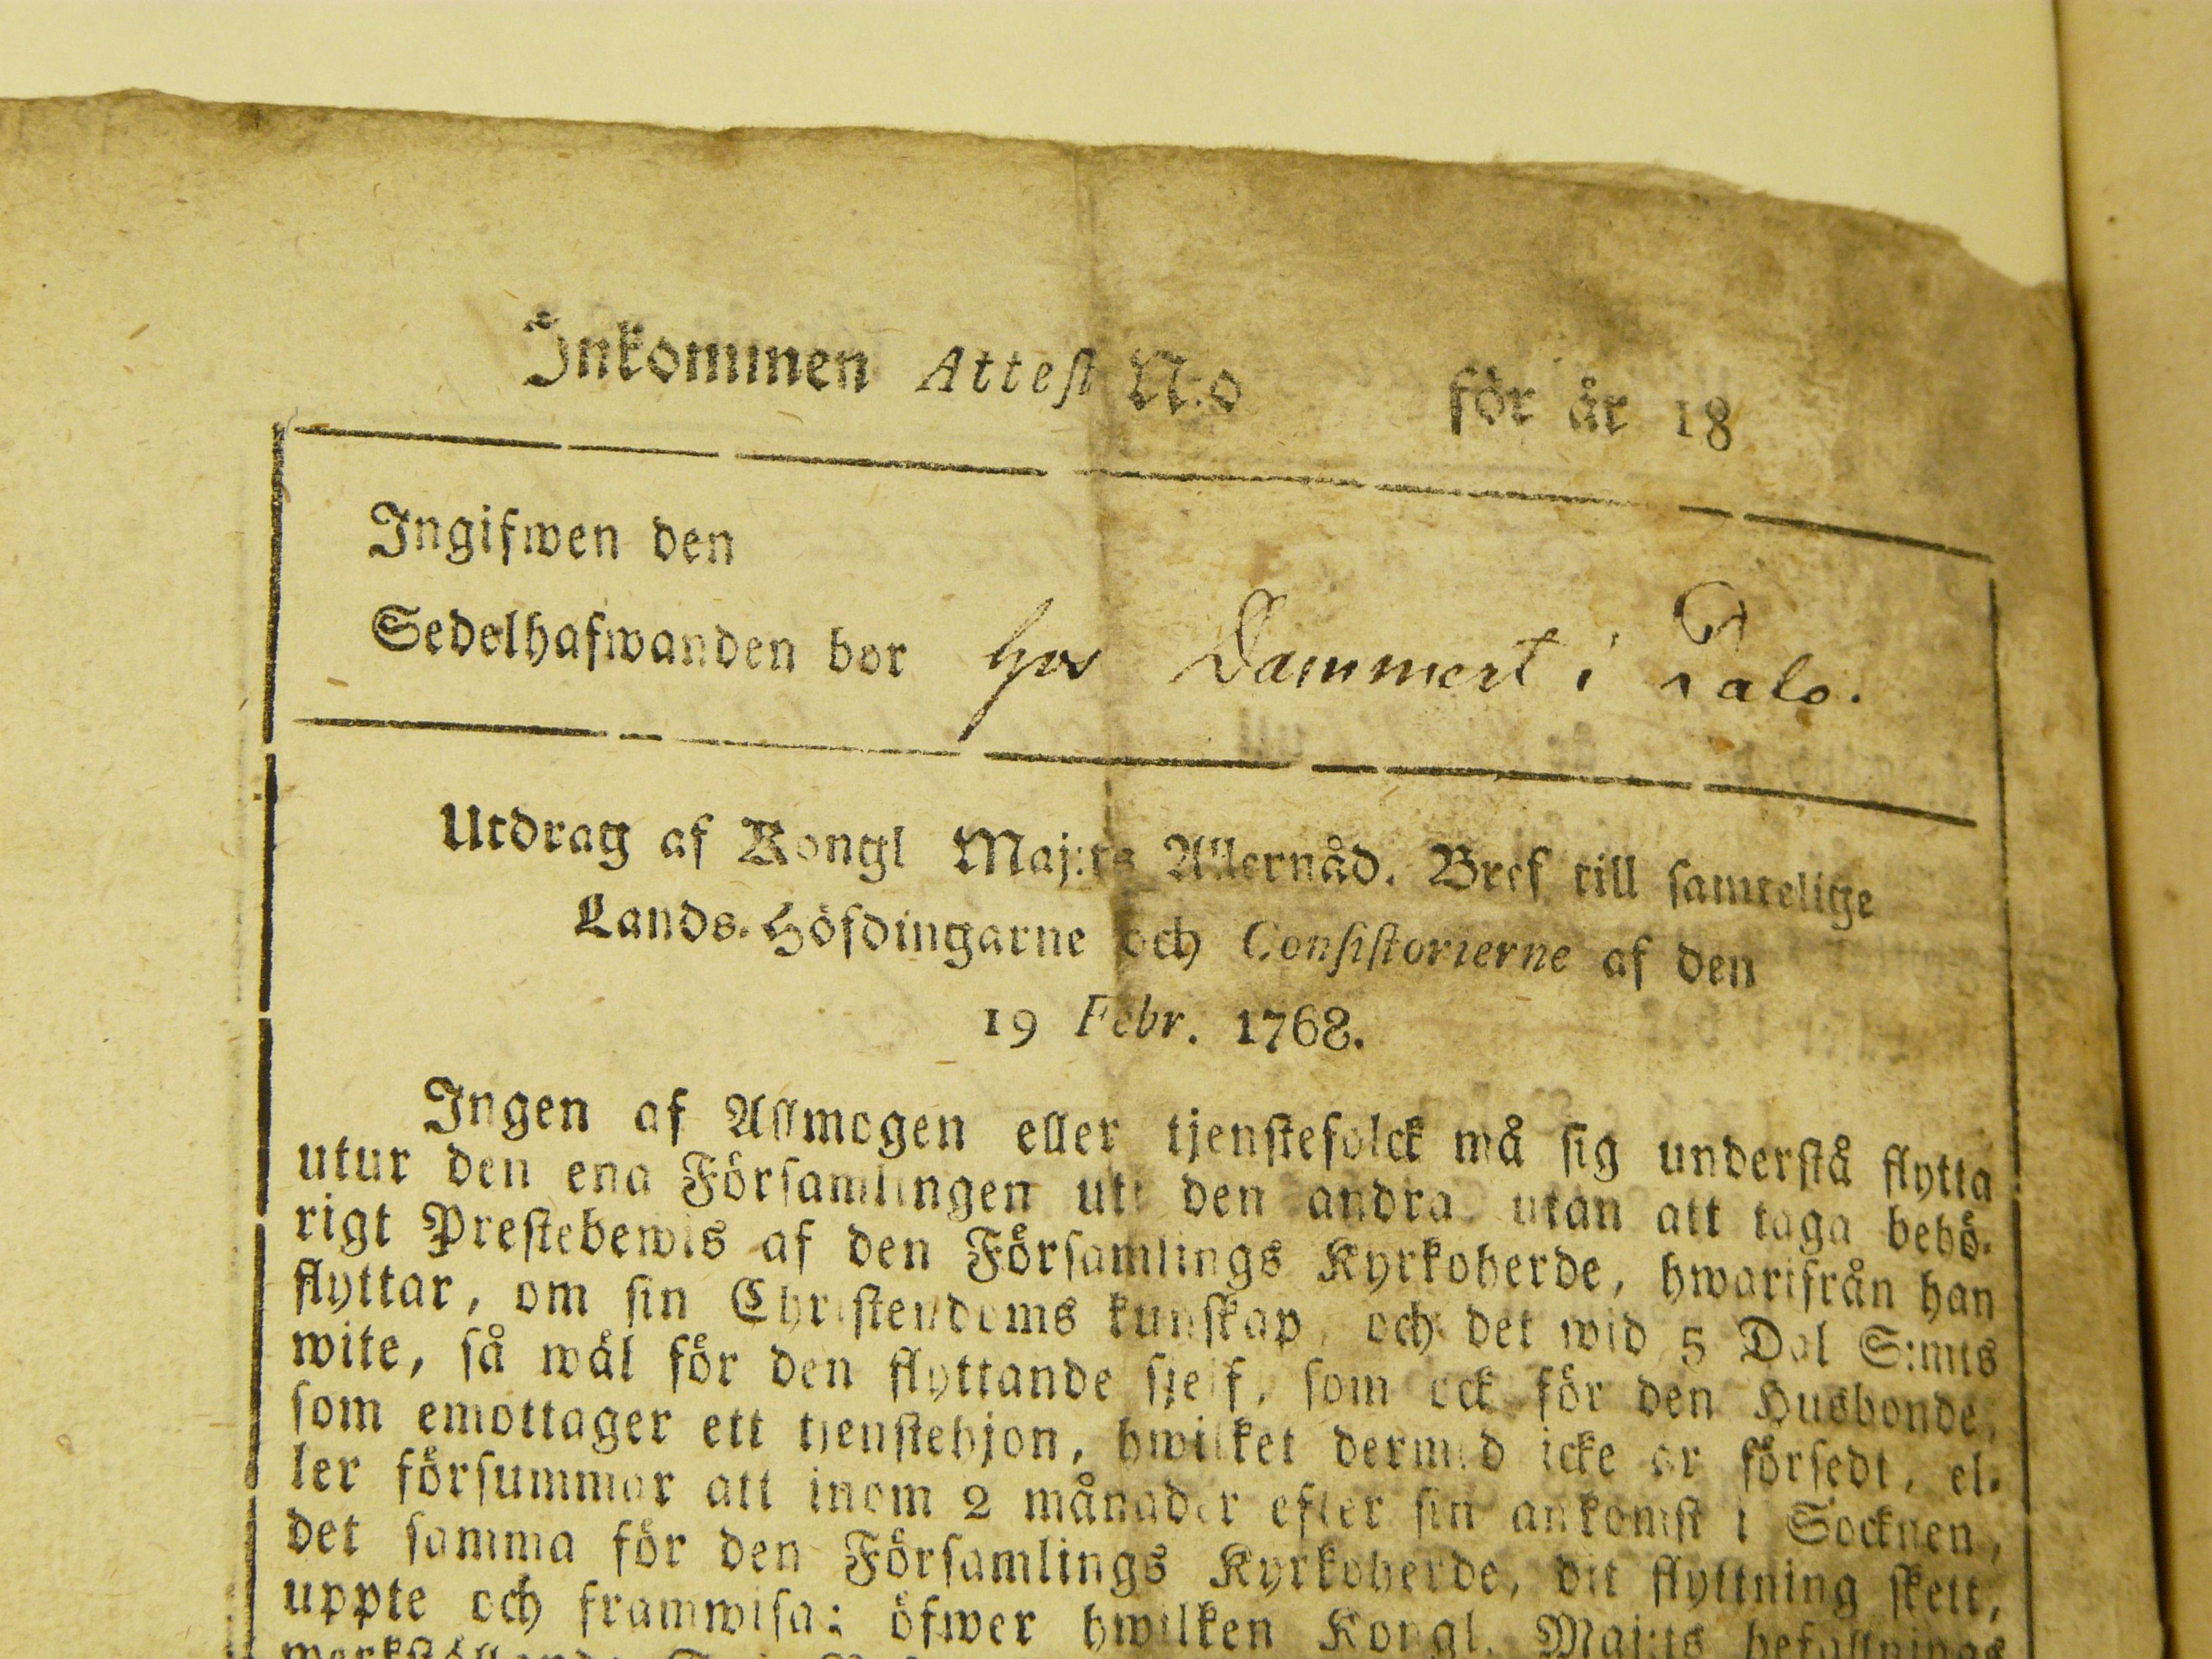 Inkommen Attest N:o för år 18
Ingifwen den
Sedelhafwanden bor hos Dammert i Palo.
Utdrag af Kongl Maj:ts Allernåd. Bref till samtelige
Lands-Höfdingarne och Consistorierne af den
19 Febr. 1768.
Ingen af Allmogen eller tjenstefolck må sig understå flytta
utur den ena Församlingen uti den andra utan att taga behö-
rigt Prestebewis af den Församlings Kyrkoherde, hwarifrån han
flyttar, om sin Christendoms kunskap, och det wid 5 Dal S:mts
wite, så wäl för den flyttande sjelf, som ock för den Husbonde,
som emottager ett tjenstehjon, hwilket dermed icke är försedt, el-
ler försummar att inom 2 månader efter sin ankomst i Socknen,
det samma för den Församlings Kyrkoherde, dit flyttning skett,
uppte och framwisa; öfwer hwilken Kongl. Maj:ts befallnings